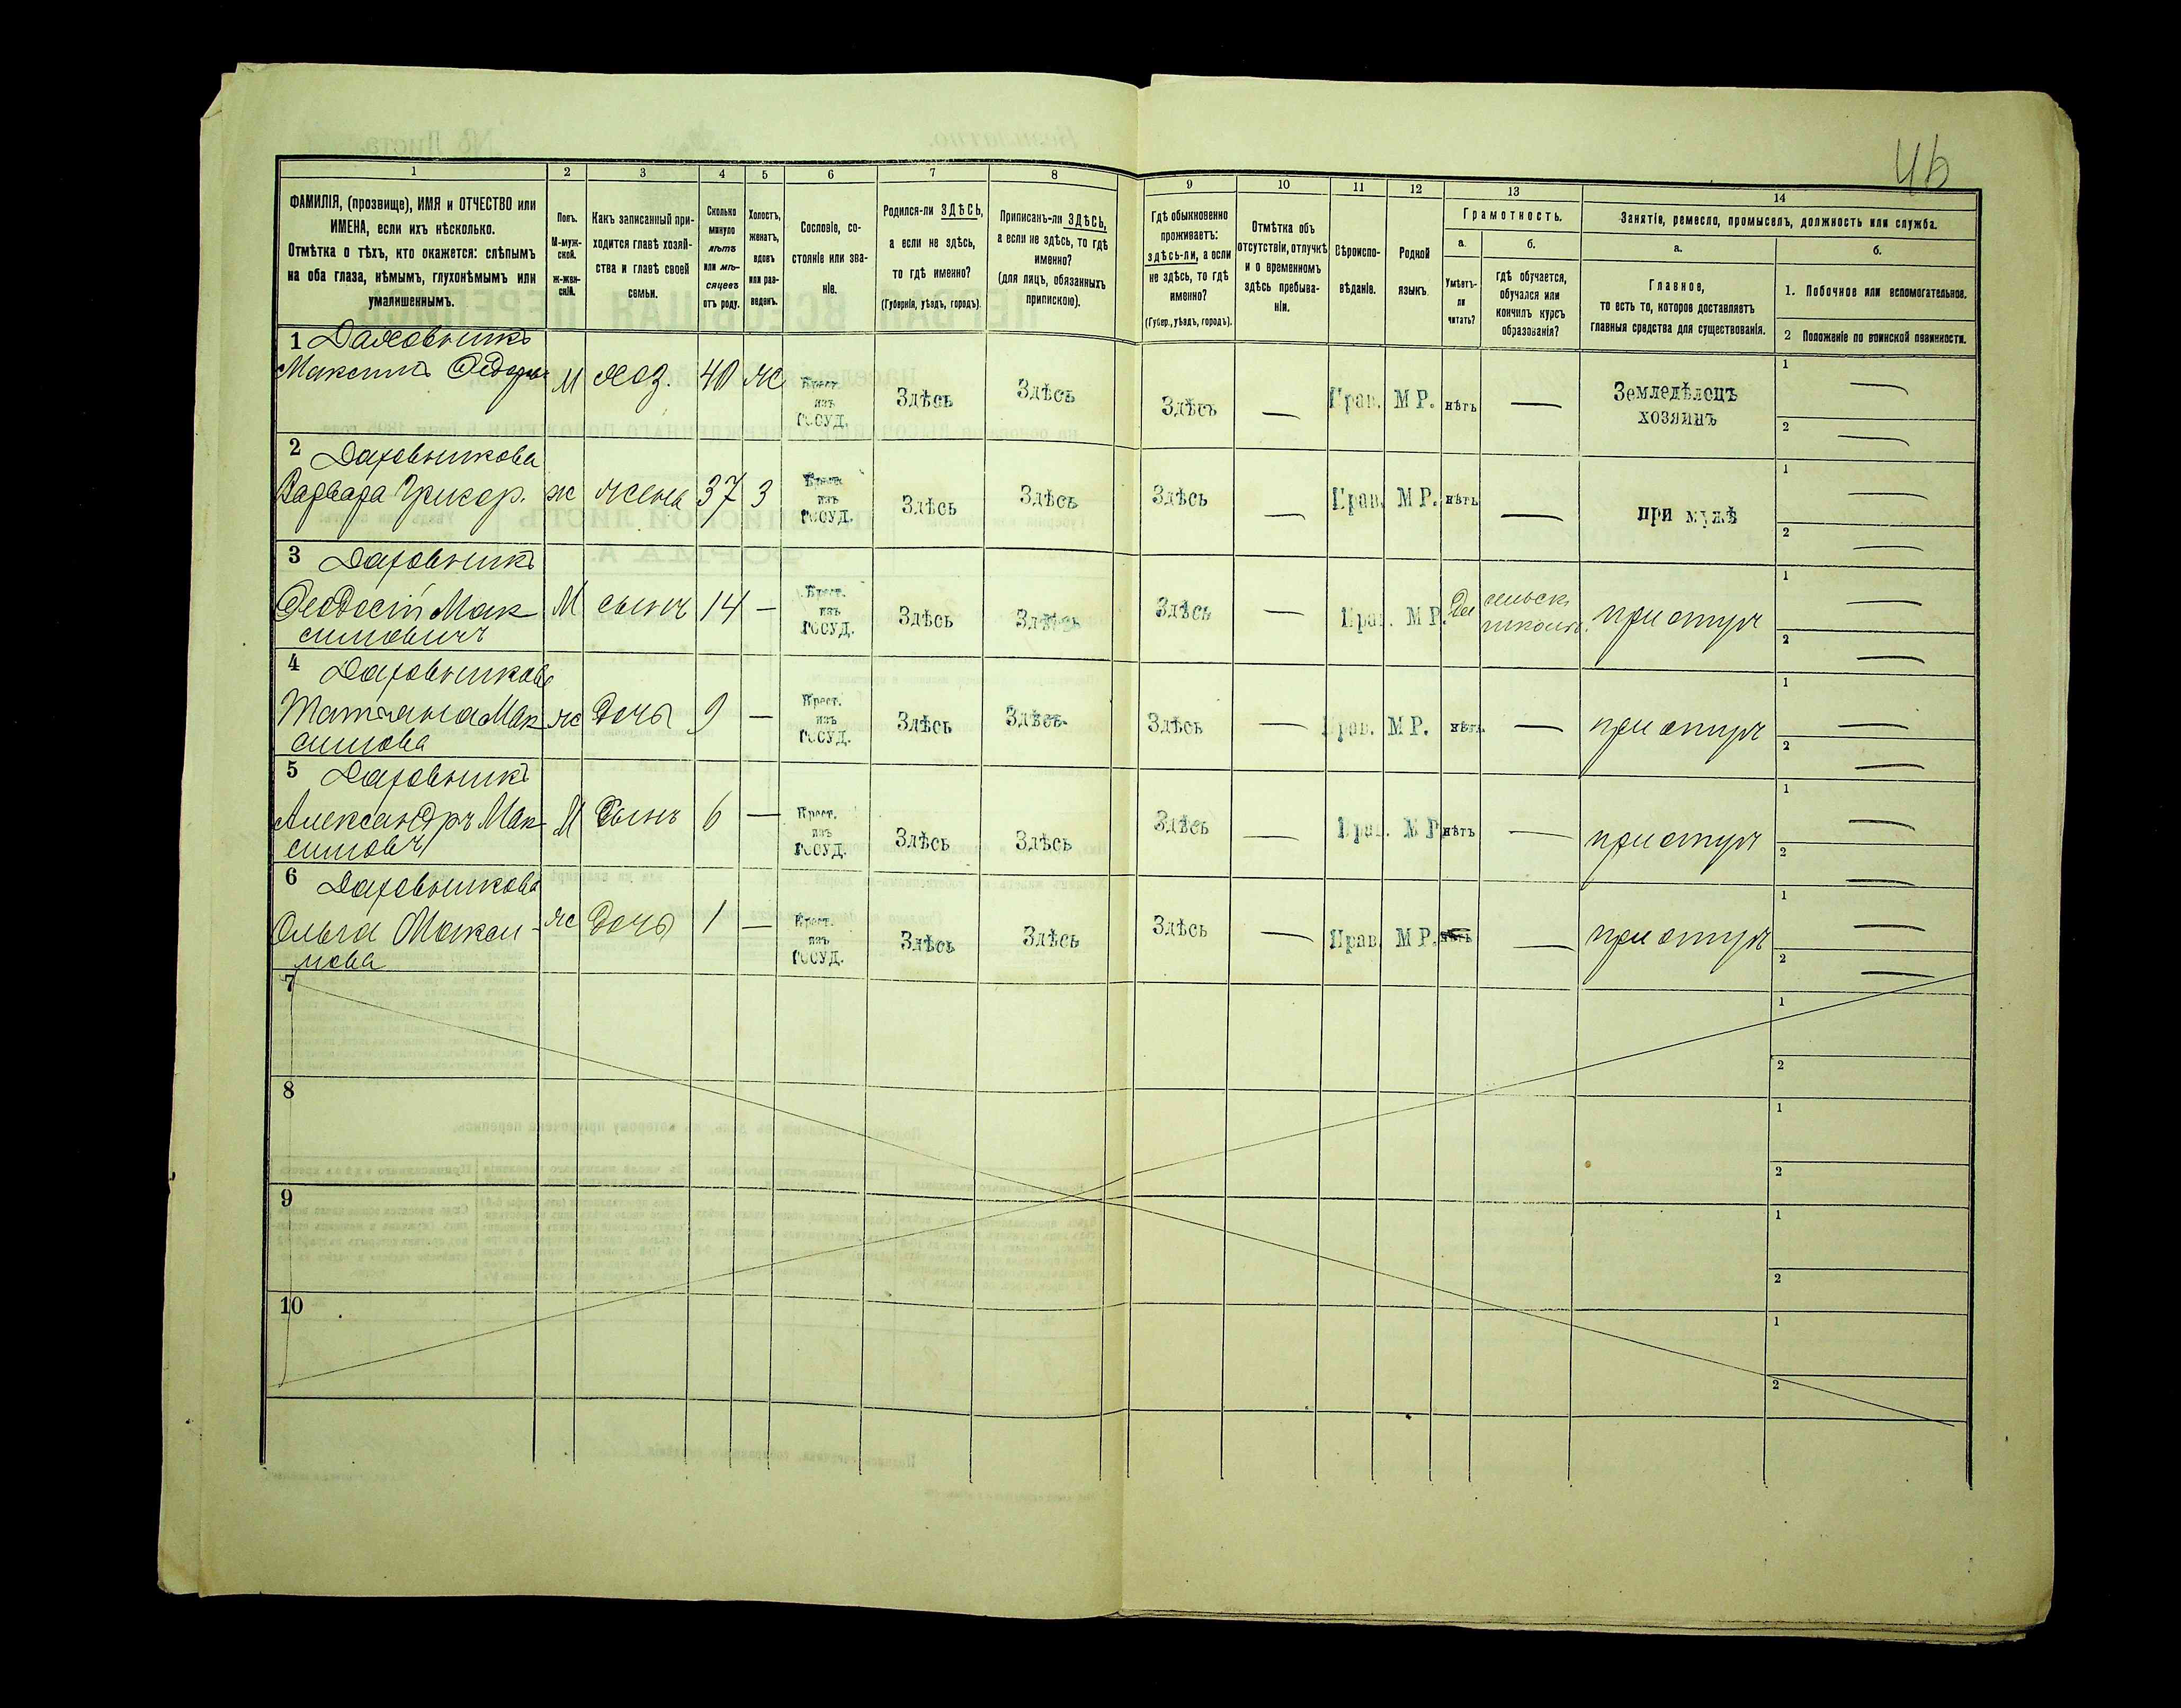 46
1
2
3
4
5
6
7
8
9
10
11
12
13
14
ФАМИЛІЯ, (прозвище), ИМЯ и ОТЧЕСТВО или
ИМЕНА, если ихъ нѣсколько.
Отмѣтка о тѣхъ, кто окажется: слѣпымъ
на оба глаза, нѣмымъ, глухонѣмымъ или
умалишеннымъ.
Полъ.
М-муж-
ской.
ж-жен-
скій.
Какъ записанный при-
ходится главѣ хозяй-
ства и главѣ своей
семьи.
Сколько
минуло
лѣтъ
или мѣ-
сяцевъ
отъ роду.
Холостъ,
женатъ,
вдовъ
или раз-
веденъ.
Сословіе, со-
стояніе или зва-
ніе.
Родился-ли ЗДѢСЬ,
а если не здѣсь,
то гдѣ именно?
(Губернія, уѣздъ, городъ).
Приписанъ-ли ЗДѢСЬ,
а если не здѣсь, то гдѣ
именно?
(для лицъ, обязанныхъ
припискою).
Гдѣ обыкновенно
проживаетъ:
здѣсь-ли, а если
не здѣсь, то гдѣ
именно?
(Губер., уѣздъ, городъ).
Отмѣтка объ
отсутствіи, отлучкѣ
и о временномъ
здѣсь пребыва-
ніи.
Вѣроиспо-
вѣданіе.
Родной
языкъ.
Грамотность.
а.
Умѣетъ-
ли
читать?
б.
гдѣ обучается,
обучался или
кончилъ курсъ
образованія?
Занятіе, ремесло, промыселъ, должность или служба.
а.
Главное,
то есть то, которое доставляетъ
главныя средства для существованія.
б.
1. Побочное или вспомогательное.
2 Положеніе по воинской повинности.
1 Даховникъ
Максимъ Федоръ М хоз. 40 ж Крест. изъ ГОСУД. Здѣсь Здѣсь Здѣсь — Прав. МР. нѣтъ — Земледѣлецъ хозяинъ 1 — 2 —
2 Даховникова
Варвара Григор. ж жена 37 З Крест. изъ ГОСУД. Здѣсь Здѣсь Здѣсь — Прав. МР. нѣтъ — при мужѣ 1 — 2 —
3 Даховникъ
Феодосій Мак М сынъ 14 — Крест. изъ ГОСУД. Здѣсь Здѣсь Здѣсь — Прав. МР. Да сельск. школѣ. при отцѣ 1 — 2 —
симовичъ
4 Даховникова
Татіана Мак ж дочь 9 — Крест. изъ ГОСУД. Здѣсь Здѣсь Здѣсь — Прав. МР. нѣтъ — при отцѣ 1 — 2 —
симова
5 Даховникъ
Александръ Мак М Сынъ 6 — Крест. изъ ГОСУД. Здѣсь Здѣсь Здѣсь — Прав. МР нѣтъ — при отцѣ 1 — 2 —
симовч
6 Даховникова
Ольга Макси- ж дочь 1 — Крест. изъ ГОСУД. Здѣсь Здѣсь Здѣсь — Прав. МР. нѣтъ — при отцѣ 1 — 2 —
мова
7 1 2
8 1 2
9 1 2
10 1 2